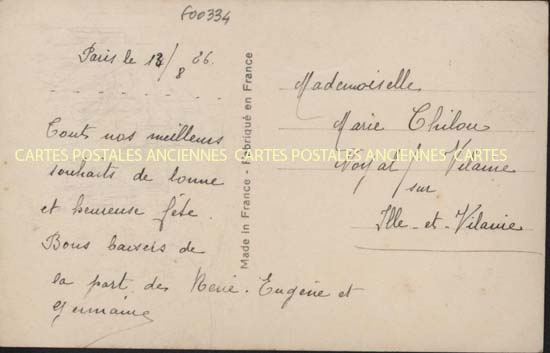 600334
Paris le 12/8 36.
Touts nos meilleurs
souhaits de bonne
et heureuse fête.
Bons baisers de
la part de René. Eugène et
Germaine
Made in France - Fabriqué en France
Mademoiselle
Marie Chilou
Noyal s/ Vilaine
sur
Ille-et-Vilaine
CARTES POSTALES ANCIENNES CARTES POSTALES ANCIENNES CARTES